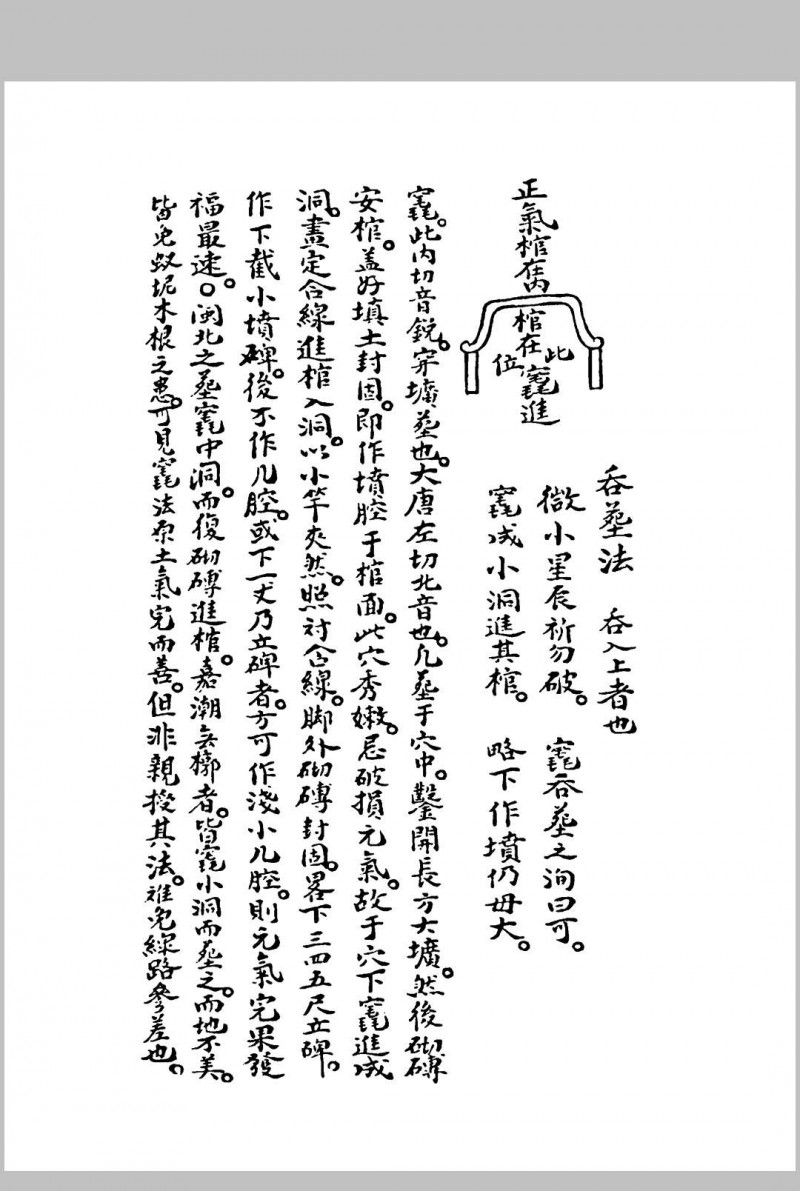 吞塟法　吞入上者也
微小星辰祈勿破。　竁吞塟之洵曰可。
竁成小洞進其棺。　略下作墳仍毋大。
正氣棺在内
棺在
此
位
竁進
竁。此内切音銳。穿壙塟也。大唐左切北音也。凡塟于穴中。鑿開長方大壙。然後砌磚
安棺。蓋好填土封固。即作墳腔于棺面。此穴秀嫩。忌破損元氣。故于穴下竁進成
洞。畫定合線進棺入洞。以小竿夾然。照対合線。脚外砌磚封固。畧下三四五尺立碑。
作下截小墳碑。後不作几腔。或下一丈乃立碑者。方可作淺小几腔。則元氣完果發
福最速。〇閩北之塟竁中洞。而復砌磚進棺。嘉潮无槨者。皆竁小洞而塟之。而地不美。
皆免蚁坭木根之患。可見竁法原土氣完而善。但非親授其法。难免線路參差也。